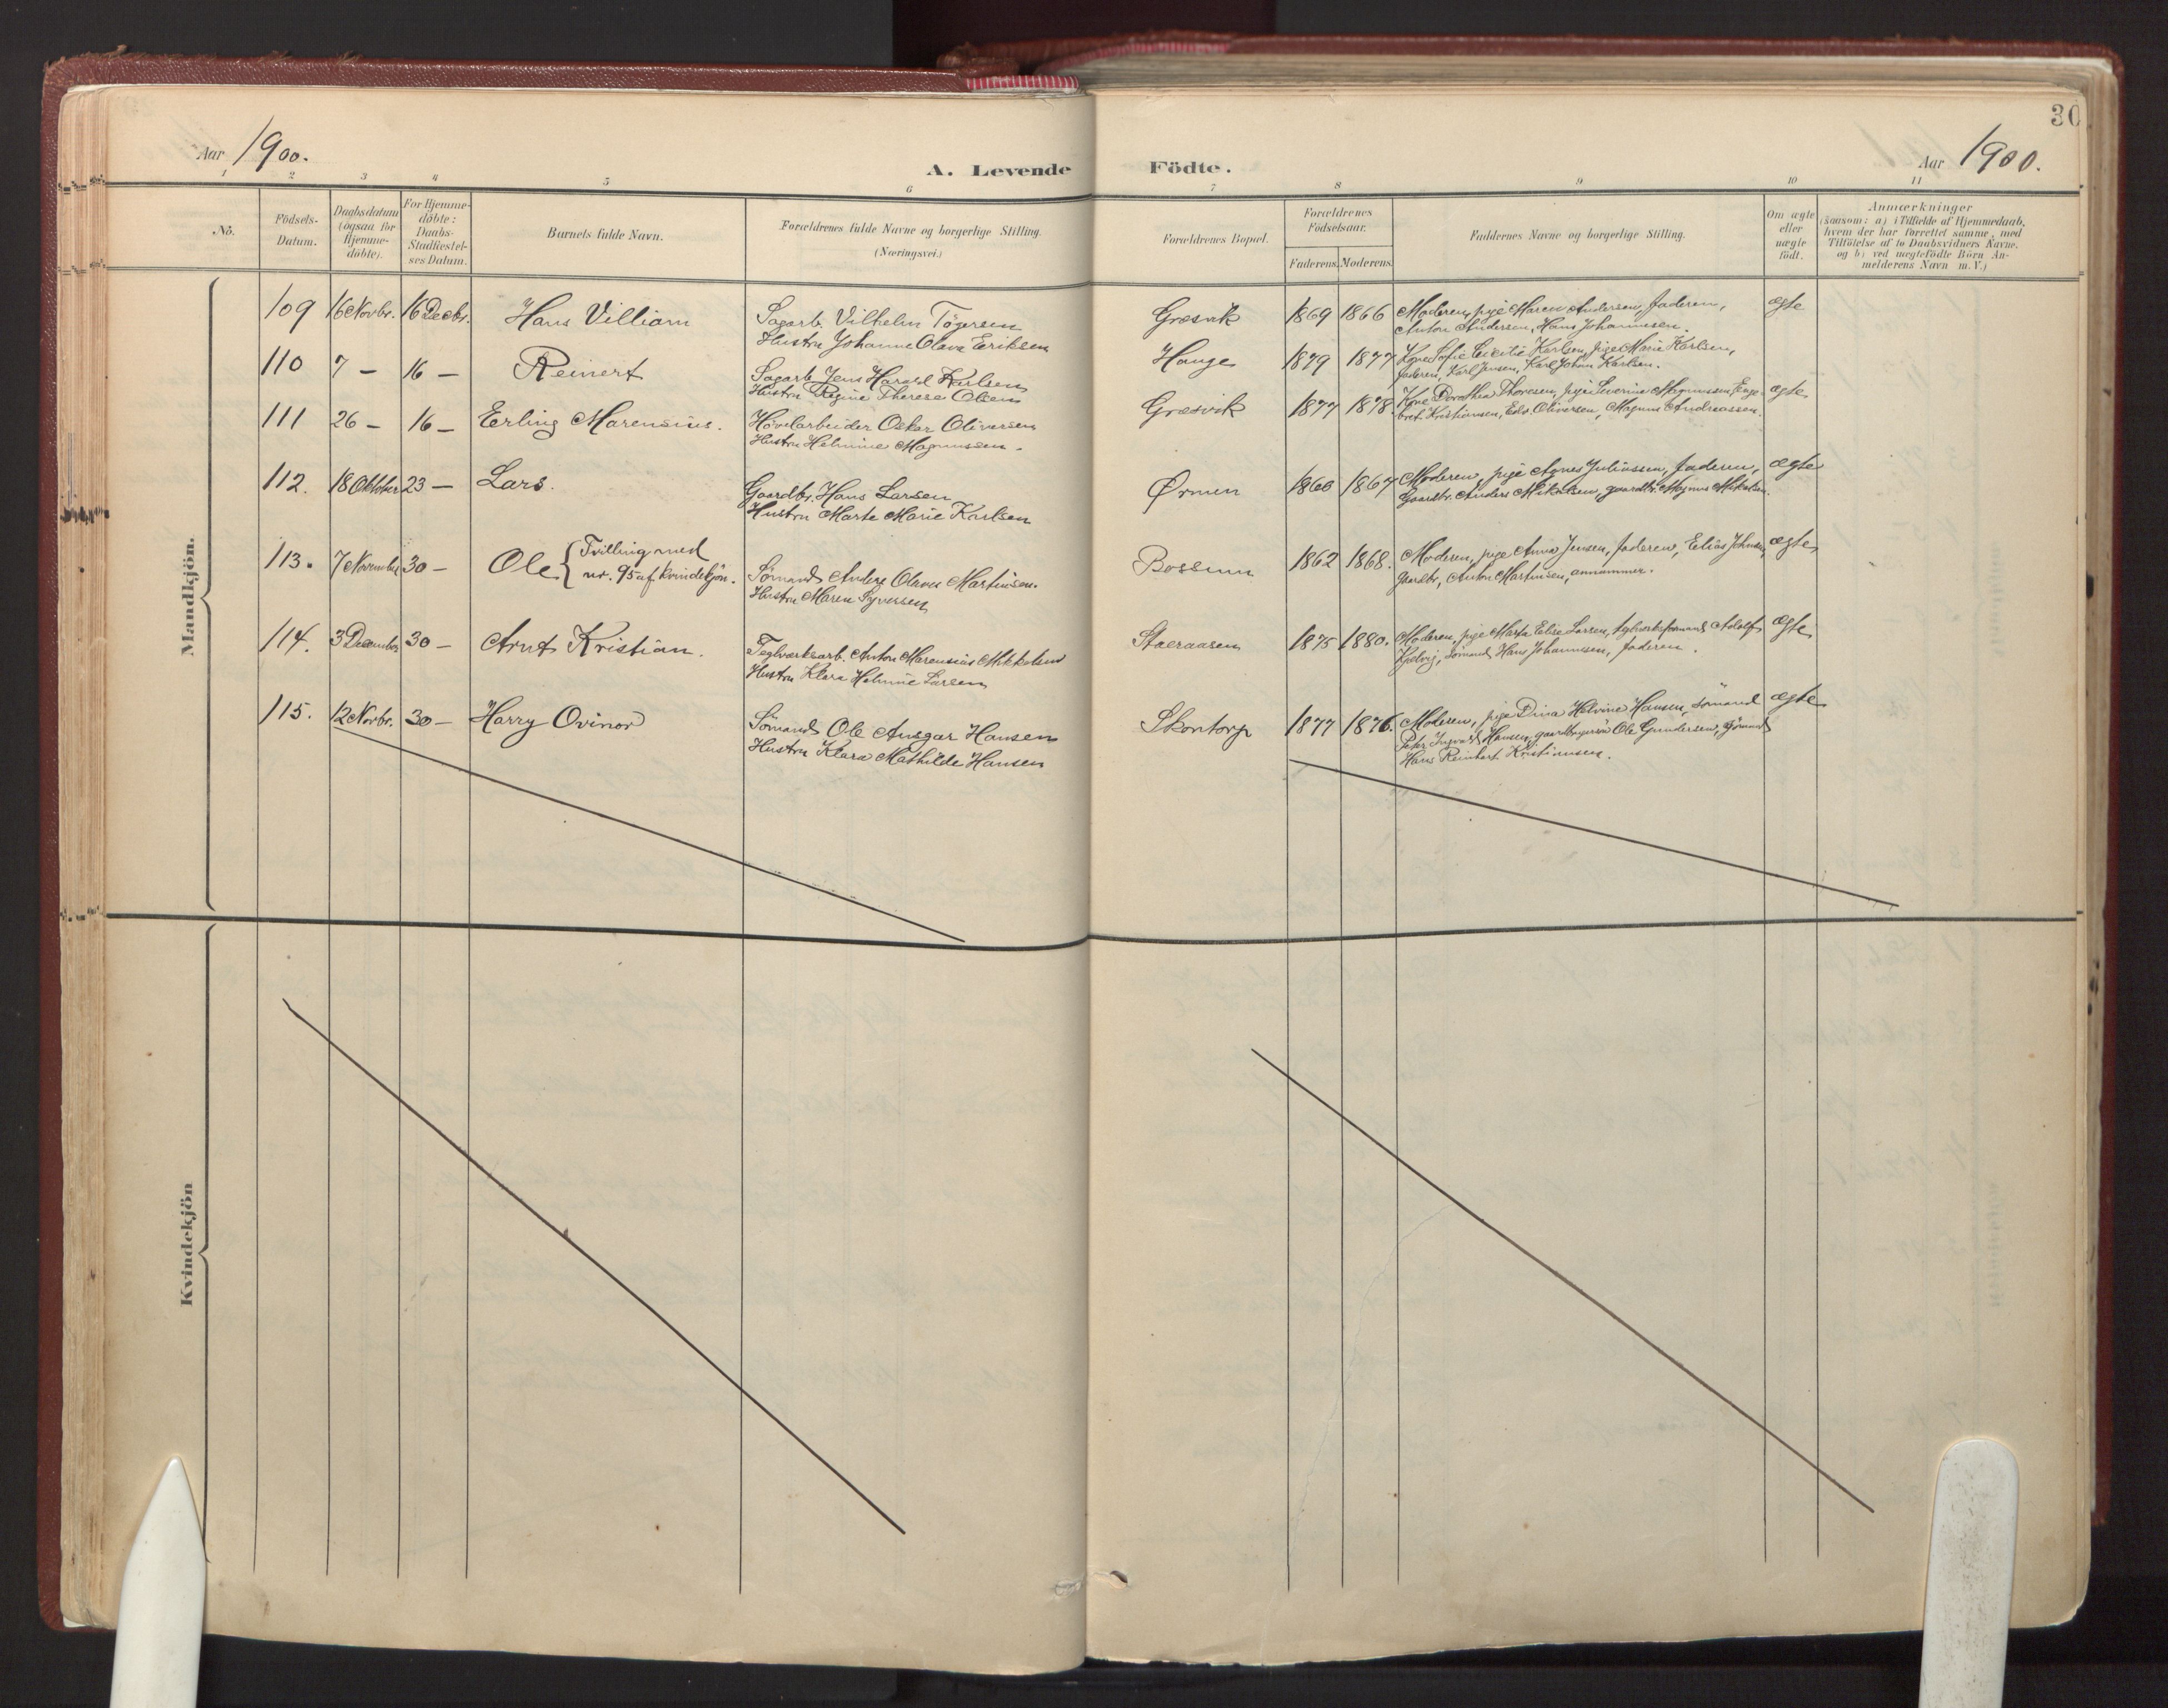 30
Aar 1900.
A. Levende Födte.
Aar 1900.
1 2 3 4 5 6 7 8 9 10 11
Nö.
Födsels-
Datum.
Daabsdatum
(ogsaa for
Hjemme-
döbte).
For Hjemme-
döbte:
Daabs-
Stadfæstel-
ses Datum.
Barnets fulde Navn.
Forældrenes fulde Navne og borgerlige Stilling.
(Næringsvei.)
Forældrenes Bopæl.
Forældrenes
Födselsaar.
Faderens. Moderens.
Faddernes Navne og borgerlige Stilling.
Om ægte
eller
uægte
födt.
Anmærkninger
(saasom: a) i Tilfælde af Hjemmedaab,
hvem der har forrettet samme, med
Tilföielse af to Daabsvidners Navne.
og b) ved uægtefödte Börn An-
melderens Navn m. V.)
Mandkjön.
109 16 Novbr. 16 Decbr. Hans Villiam Sagarb. Vilhelm Tögersen Græsvik 1869 1866 Moderen, pige Maren Andersen, faderen, ægte
Hustru Johanne Olava Eriksen Anton Andersen, Hans Johannesen.
110 7 – 16 – Reinert Sagarb. Jens Harald Karlsen Hauge 1879 1877 Kone Sofie Karlsen, pige Marie Karlsen,
Hustru Regine Therese Olsen faderen, Karl Jensen, Karl Johan Karlsen.
111 26 – 16 – Erling Marensius. Hövelarbeider Oskar Oliversen Græsvik 1877 1878. Kone Dorothea Thoresen, pige Severine Magnussen, Enge- ægte
Hustru Helmine Magnussen. bret Kristiansen, Edv. Oliversen, Magnus Andreassen.
112. 18 Oktober 23 – Lars. Gaardbr. Hans Larsen Ørmen 1860 1867 Moderen, pige Agnes Juliussen, faderen, ægte
Hustru Marte Marie Karlsen Gaardbr. Anders Mikalsen, gaardbr. Magnus Mikalsen.
113. 7 November 30 – Ole { Tvilling med
nr. 95 af kvindekjön. Sömand Anders Olaus Martinsen. Bossum 1862 1868. Moderen, pige Anna Jensen, faderen, Elias Johnsen, ægte
Hustru Maren Syversen gaardbr, Anton Martinsen,
114. 3 December 30 – Arnt Kristian. Teglværksarb. Anton Marensius Mikkelsen 1875 1880. Moderen, pige Marta Elise Larsen, Adolf ægte
Hustru Klara Helmine Larsen Kjelvig, sömand Hans Johannesen, faderen.
115. 12 Novbr. 30 – Harry Ovinor Sömand Ole Ansgar Hansen Skontorp 1877 1876. Moderen, pige Dina Helvine Hansen, sömand ægte
Hustru Klara Mathilde Hansen Peter Ingvald Hansen, Ole Gundersen, sömand
Hans Reinhart Kristiansen.
Kvindekjön